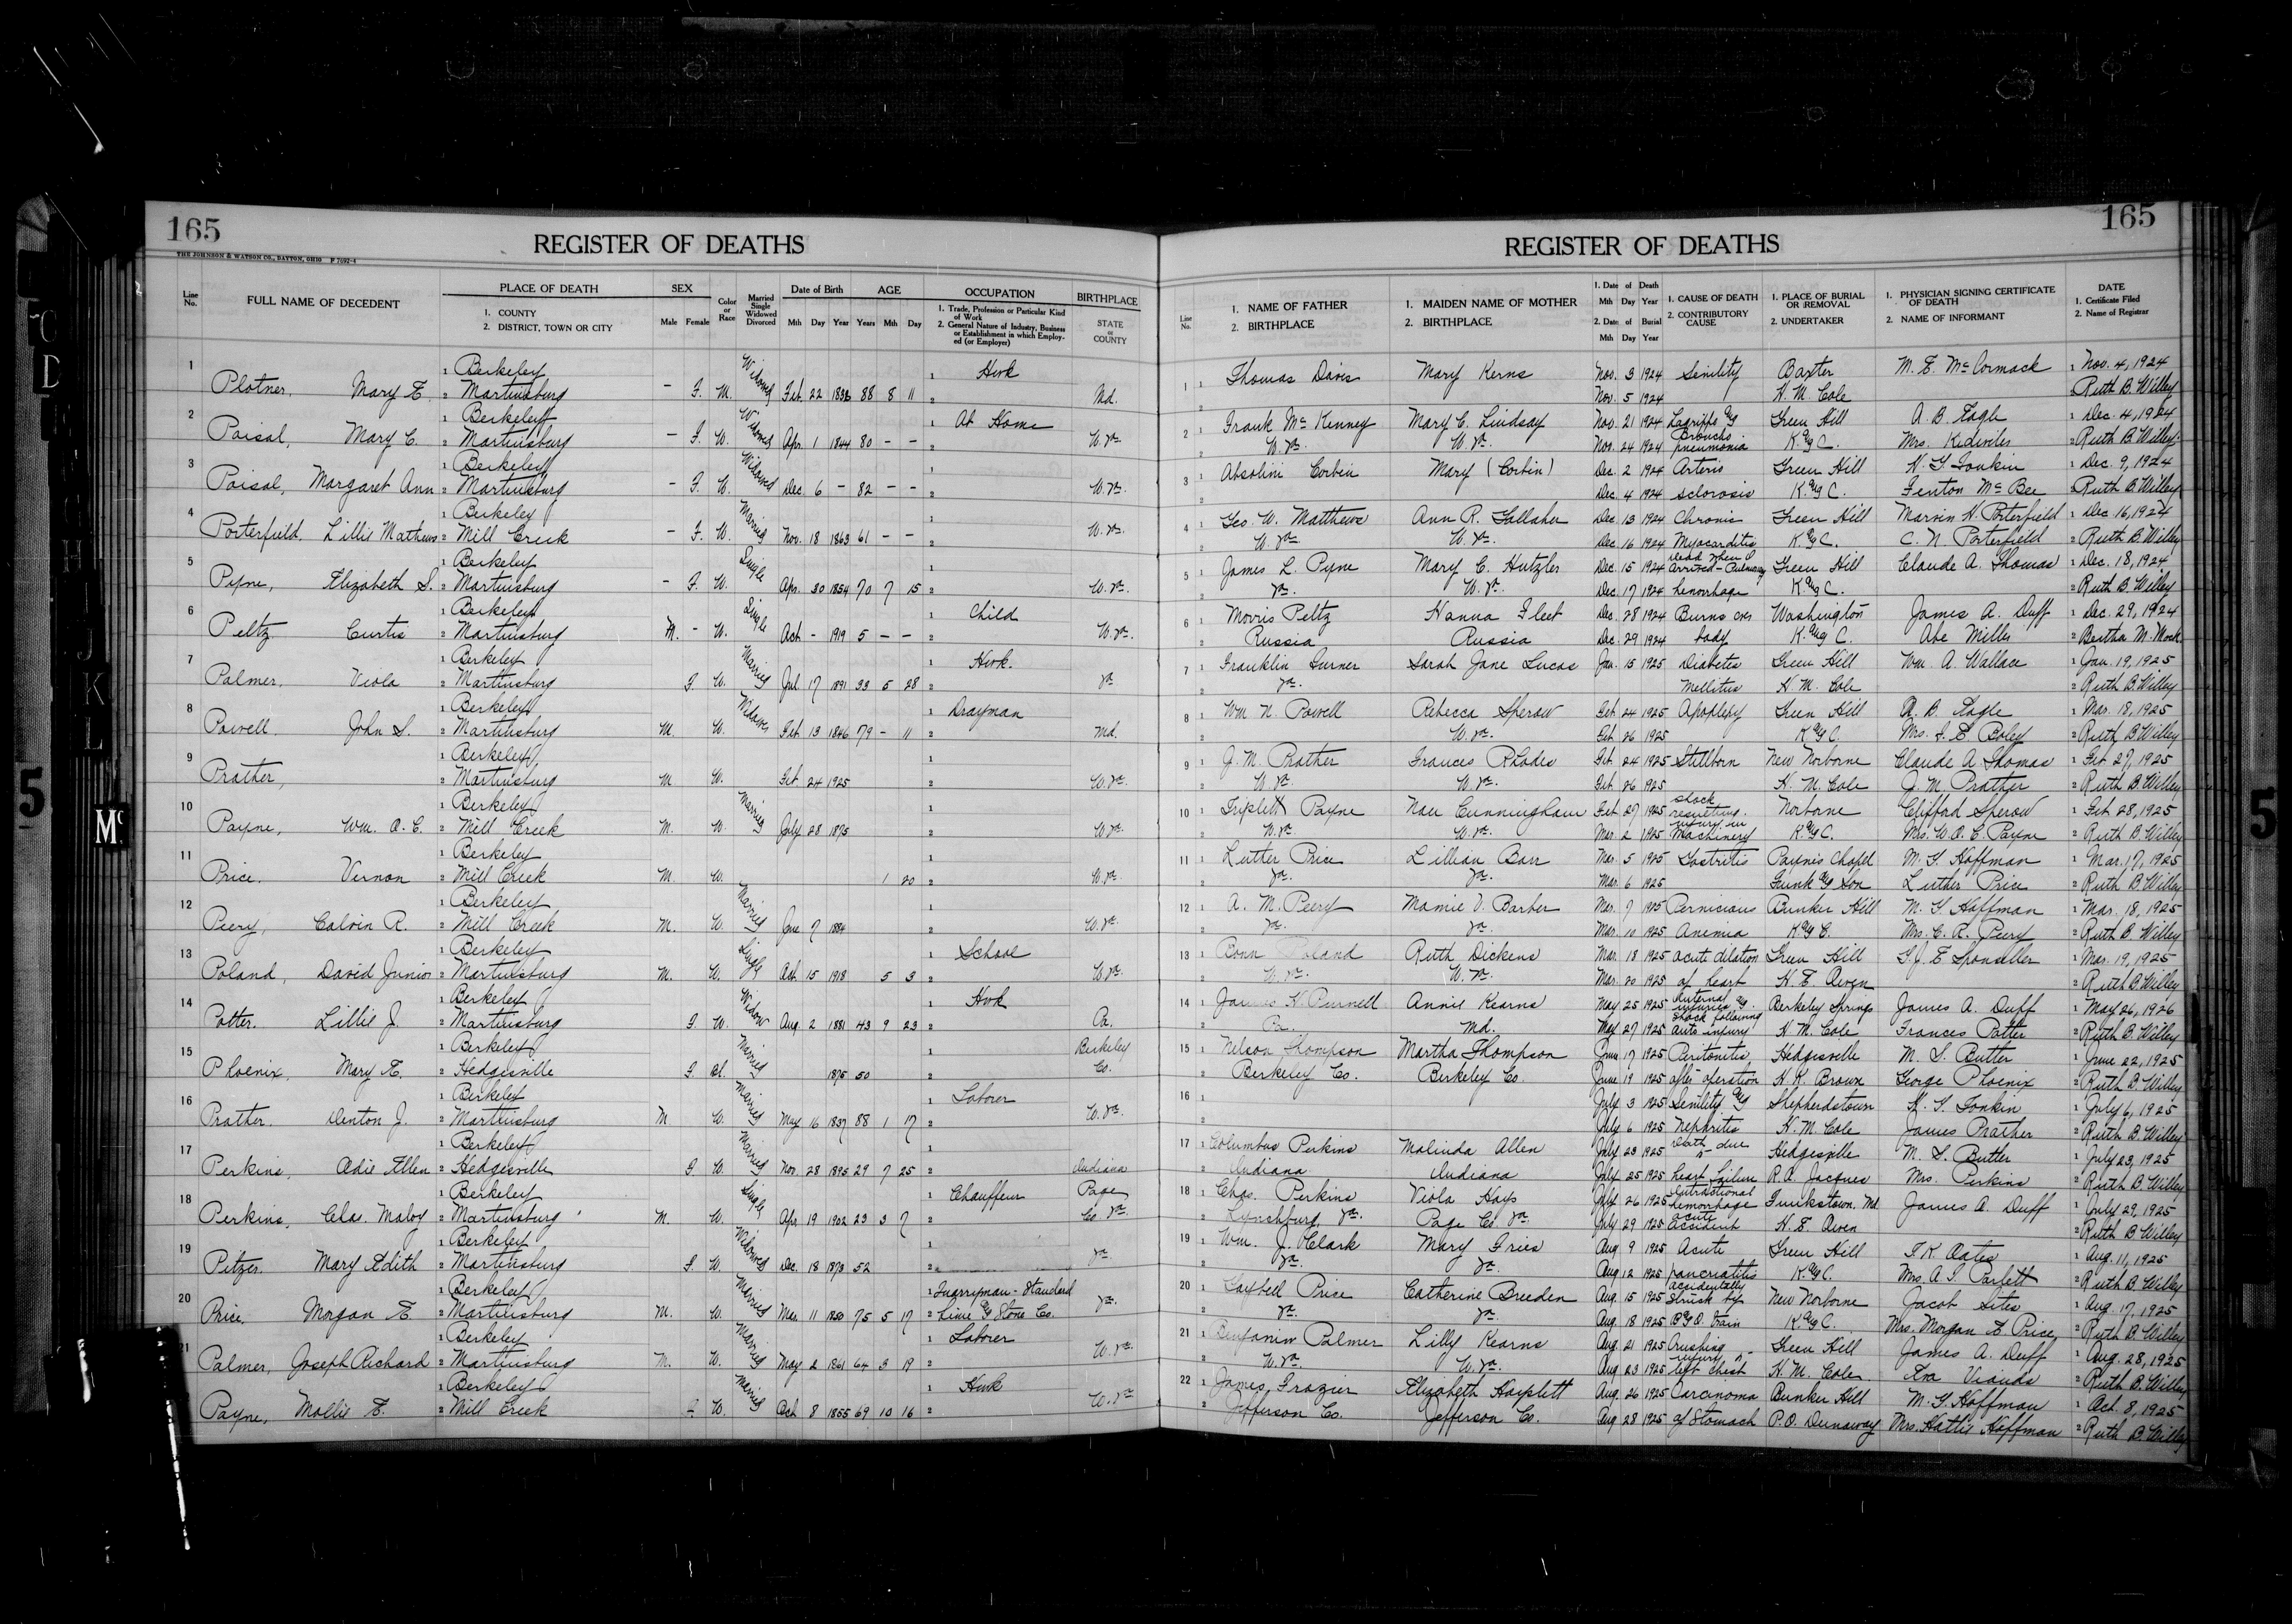 165
REGISTER OF DEATHS
THE JOHNSON & WATSON CO., DAYTON, OHIO P 7692-4
Line No.
FULL NAME OF DECEDENT
PLACE OF DEATH
1. COUNTY
2. DISTRICT, TOWN OR CITY
SEX
Male Female
Color or Race
Married Single Widowed Divorced
Date of Birth
Mth Day Year
AGE
Years Mth Day
OCCUPATION
1. Trade, Profession or Particular Kind of Work
2. General Nature of Industry, Business or Establishment in which Employed (or Employer)
BIRTHPLACE
STATE or COUNTY
1 1 Berkeley 1 Hwk
Plotner, Mary E. 2 Martinsburg – F. W. Widowed Feb. 22 1836 88 8 11 2 Md.
2 1 Berkeley 1 At Home
Poisal, Mary C. 2 Martinsburg – F. W. Widowed Apr. 1 1844 80 – – 2 W. Va.
3 1 Berkeley 1
Poisal, Margaret Ann 2 Martinsburg – F. W. Widowed Dec 6 – 82 – – 2 W. Va.
4 1 Berkeley 1
Porterfield, Lillie Mathews 2 Mill Creek – F. W. Married Nov. 18 1863 61 – – 2 W. Va.
5 1 Berkeley 1
Pyne, Elizabeth S. 2 Martinsburg – F. W. Single Apr. 30 1854 70 7 15 2 W. Va.
6 1 Berkeley 1 Child
Peltz Curtis 2 Martinsburg M. – W. Single Oct – 1919 5 – – 2 W. Va.
7 1 Berkeley 1 Hwk.
Palmer, Viola 2 Martinsburg F. W. Married Jul 17 1891 33 5 28 2 Va
8 1 Berkeley 1 Drayman
Powell John S. 2 Martinsburg M. W. Widower Feb. 13 1846 79 – 11 2 Md.
9 1 Berkeley 1
Prather, 2 Martinsburg M. W. Feb. 24 1925 2 W. Va.
10 1 Berkeley 1
Payne, Wm. A. C. 2 Mill Creek M. W. Married July 28 1875 2 W. Va.
11 1 Berkeley 1
Price. Vernon 2 Mill Creek M. W. 1 20 2 W. Va.
12 1 Berkeley 1
Peery, Calvin R. 2 Mill Creek M. W. Married June 7 1884 2 W. Va.
13 1 Berkeley 1 School
Poland, David Junior 2 Martinsburg M. W. Single Oct. 15 1918 5 3 2 W. Va.
14 1 Berkeley 1 Hwk
Potter. Lillie J. 2 Martinsburg F. W. Widow Aug. 2 1881 43 9 23 2 Pa.
15 1 Berkeley 1 Berkeley
Phoenix, Mary E. 2 Hedgesville F. Cl. Married 1875 50 2 Co.
16 1 Berkeley 1 Laborer
Prather. Denton J. 2 Martinsburg M W. Married May 16 1837 88 1 17 2 W. Va.
17 1 Berkeley 1
Perkins, Adie Ellen 2 Hedgesville F. W. Married Nov. 28 1895 29 7 25 2 Indiana
18 1 Berkeley 1 Chauffeur Page
Perkins, Chas. Maloy 2 Martinsburg M. W. Single Apr 19 1902 23 3 7 2 Co. Va.
19 1 Berkeley 1
Pitzer. Mary Edith 2 Martinsburg F. W. Widowed Dec. 18 1873 52 2 Va
20 1 Berkeley 1 Quarryman - Standard
Price, Morgan E. 2 Martinsburg M. W. Married Mar. 11 1850 75 5 17 2 Lime & Stone Co. Va.
21 1 Berkeley 1 Laborer
Palmer, Joseph Richard 2 Martinsburg M. W. Married May 2 1861 64 3 19 2 W. Va.
1 Berkeley 1 Hwk
Payne, Mollie E. 2 Mill Creek F. W. Married Oct. 8 1855 69 10 16 2 W. Va
165
REGISTER OF DEATHS
Line No.
1. NAME OF FATHER
2. BIRTHPLACE
1. MAIDEN NAME OF MOTHER
2. BIRTHPLACE
1. Date of Death
Mth Day Year
2. Date of Burial
Mth Day Year
1. CAUSE OF DEATH
2. CONTRIBUTORY CAUSE
1. PLACE OF BURIAL OR REMOVAL
2. UNDERTAKER
1. PHYSICIAN SIGNING CERTIFICATE OF DEATH
2. NAME OF INFORMANT
DATE
1. Certificate Filed
2. Name of Registrar
1 1 Thomas Davis Mary Kerns Nov. 3 1924 Senility Baxter M. E. McCormack 1 Nov. 4, 1924
2 Nov. 5 1924 H. M. Cole Ruth B. Willey
2 1 Frank McKenney Mary C. Lindsay Nov. 21 1924 Lagrippe & Green Hill A. B. Eagle 1 Dec. 4, 1924
2 W. Va. W. Va. Nov. 24 1924 Broncho pneumonia K. & C. Mrs. Kidwiler 2 Ruth B. Willey
3 1 Absolim Corbin Mary (Corbin) Dec. 2 1924 Arterio Green Hill H. G. Tonkin 1 Dec. 9, 1924
2 Dec. 4 1924 sclerosis K. & C. Fenton McBee Ruth B. Willey
4 1 Geo. W. Matthews Ann R. Gallaher Dec. 13 1924 Chronic Green Hill Marvin H. Porterfield 1 Dec 16, 1924
2 W. Va. W. Va. Dec. 16 1924 Myocarditis K. & C. C. N. Porterfield 2 Ruth B. Willey
5 1 James L. Pyne Mary C. Hutzler Dec. 15 1924 dead when I arrived – Pulmonary Green Hill Claude A. Thomas 1 Dec. 18, 1924
2 Va. W. Va. Dec. 17 1924 hemorrhage K. & C. 2 Ruth B. Willey
6 1 Morris Peltz Hanna Fleet Dec. 28 1924 Burns over Washington James A. Duff 1 Dec. 29, 1924
2 Russia Russia Dec. 29 1924 body K. & C. Abe Miller 2 Bertha M. Mock
7 1 Franklin Turner Sarah Jane Lucas Jan. 15 1925 Diabetes Green Hill Wm. A. Wallace 1 Jan. 19, 1925
2 Va. Mellitus H. M. Cole 2 Ruth B. Willey
8 1 Wm N. Powell Rebecca Sperow Feb. 24 1925 Apoplexy Green Hill A. B. Eagle 1 Mar. 18, 1925
2 W. Va. Feb. 26 1925 K & C. Mrs. S. E. Boley 2 Ruth B. Willey
9 1 J. M. Prather Frances Rhodes Feb 24 1925 Stillborn New Norborne Claude A Thomas 1 Feb 27, 1925
2 W. Va. W. Va. Feb. 26 1925 H. M. Cole J. M. Prather 2 Ruth B. Willey
10 1 Triplett Payne Nan Cunningham Feb 27 1925 shock resulting Norborne Clifford Sperow 1 Feb 28, 1925
2 W. Va W. Va. Mar. 2 1925 injury in Machinery K & C. Mrs. W. A. C. Payne 2 Ruth B. Willey
11 1 Luther Price Lillian Barr Mar. 5 1925 Gastritis Paynes Chapel M. G. Hoffman 1 Mar. 17, 1925
2 Va. Va. Mar. 6 1925 Grunk & Son Luther Price 2 Ruth B Willey
12 1 A. M. Peery Mamie V. Barber Mar. 7 1925 Pernicious Bunker Hill M. G. Hoffman 1 Mar. 18, 1925
2 Va. Va Mar. 10 1925 Anemia K & C. Mrs. C. R. Peery 2 Ruth B. Willey
13 1 Conn Poland Ruth Dickens Mar. 18 1925 acute dilation Green Hill G. J. E Sponseller 1 Mar. 19, 1925
2 W. Va. W. Va. Mar. 20 1925 of heart H. E. Owen Ruth B. Willey
14 1 James H. Purnell Annie Kearns May 25 1925 Internal injuries & Berkeley Springs James A. Duff 1 May 26, 1926
2 Pa. Md. May 27 1925 shock following auto injury H. M. Cole Frances Potter 2 Ruth B. Willey
15 1 Nelson Thompson Martha Thompson June 17 1925 Peritonitis, Hedgesville M. S. Butler 1 June 22, 1925
2 Berkeley Co. Berkeley Co. June 19 1925 after operation H. K. Brown George Phoenix 2 Ruth B. Willey
16 1 July 3 1925 Senility & Shepherdstown H. G. Tonkin 1 July 6, 1925
2 July 6 1925 Nephritis H. M. Cole James Prather 2 Ruth B. Willey
17 1 Columbus Perkins Malinda Allen July 23 1925 Death due to Hedgesville M. S. Butler 1 July 23, 1925
2 Indiana Indiana July 25 1925 heart failure R. A. Jacques Mrs. Perkins 2 Ruth B Willey
18 1 Chas. Perkins Viola Hays July 26 1925 hemorrhage Funkstown, Md. James A. Duff 1 July 29, 1925
2 Lynchburg, Va. Page Co. Va. July 29 1925 auto accident H. E. Owen 2 Ruth B Willey
19 1 Wm. J. Clark Mary Fries Aug. 9 1925 Acute Green Hill T. K. Oates 1 Aug. 11, 1925
2 Va. Va. Aug 12 1925 pancreatitis K. & C. Mrs. A. S. Parlett 2 Ruth B. Willey
20 1 Price Catherine Breeden Aug. 15 1925 accidentally struck by New Norborne Jacob Sites 1 Aug. 17, 1925
2 Va. Va. Aug. 18 1925 B & O. train K & C. Mrs. Morgan E Price, 2 Ruth B. Willey
21 1 Benjamin Palmer Lilly Kearns Aug. 21 1925 Crushing Green Hill James A. Duff 1 Aug. 28, 1925
2 W. Va. W. Va. Aug 23 1925 injury to left chest H. M. Cole Ira Viands 2 Ruth B. Willey
22 1 James Frazier Elizabeth Hayslett Aug. 26 1925 Carcinoma Bunker Hill M. G. Hoffman 1 Oct. 8, 1925
2 Jefferson Co. Jefferson Co. Aug 28 1925 of Stomach P. O. Dunaway Mrs. Hattie Hoffman 2 Ruth B. Willey
C
D
H
J
K
L
Mc
5
5